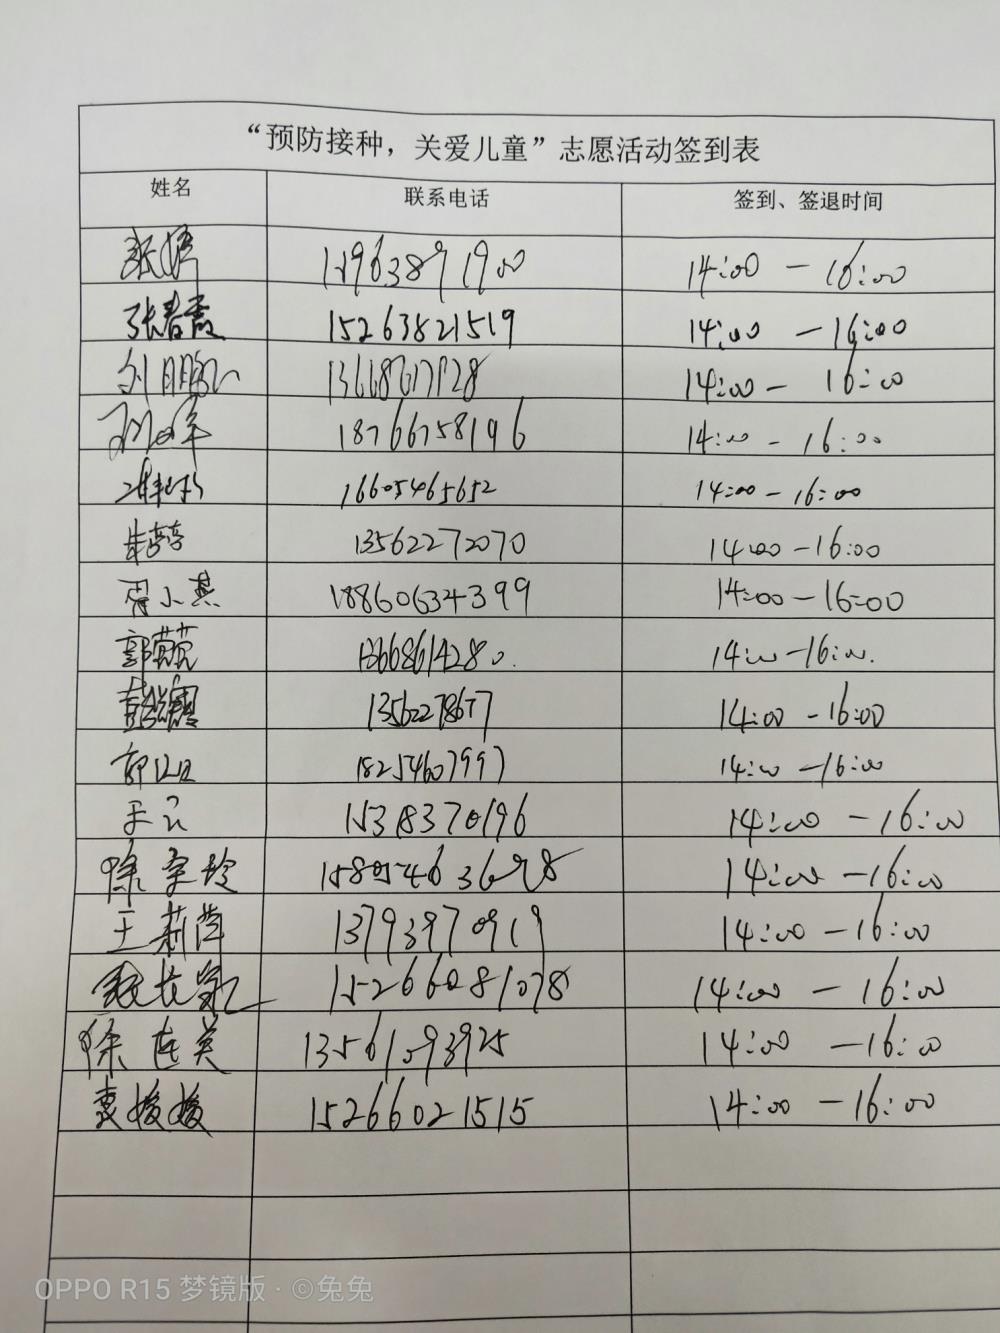 “预防接种，关爱儿童”志愿活动签到表
姓名 联系电话 签到、签退时间
14:00 — 16:00
张春霞 15263821519 14:00 — 16:00
14:00 — 16:00
18766758196 14:00 - 16:00
16605465652 14:00 - 16:00
朱 13562272070 14:00 - 16:00
周小燕 18860634399 14:00 - 16:00
郭 13668614280. 14:00 - 16:00.
13562278677 14:00 - 16:00
18254607997 14:00 - 16:00
王云 15318370196 14:00 - 16:00
徐 玲 14:00 - 16:00
王莉萍 13793970919 14:00 - 16:00
15266081078 14:00 - 16:00
徐连英 13561093925 14:00 - 16:00
袁媛媛 15266021515 14:00 - 16:00
OPPO R15 梦镜版 · ©兔兔